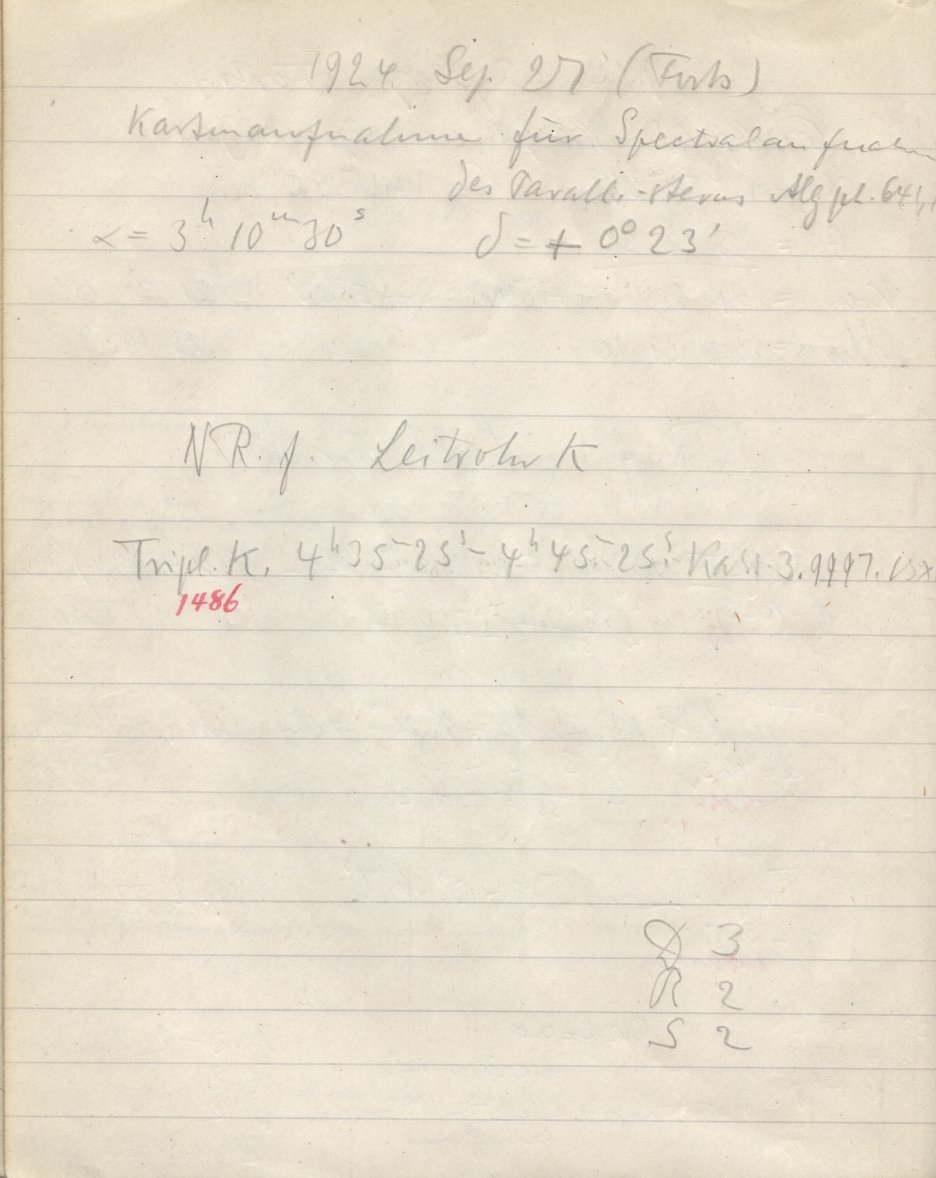 1924 Sep 27 (Forts)
Kartenaufnahme für Spectralaufnahm
des Parall.-sterns Alg ph. 641,1
α = 3h 10m 30s δ = + 0° 23'
NR. f. Leitrohr K
Tripl. K. 4h 35m 25s - 4h 45m 25s. Kass 3. 9997.
1486
D 3
R 2
S 2